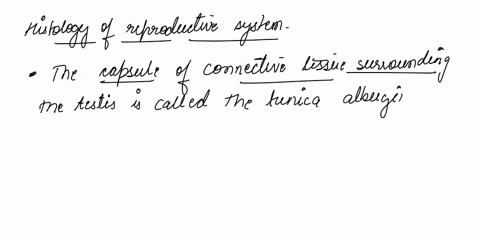 Histology of reproductive system.
• The capsule of connective tissue surrounding
the testis is called the tunica albugi